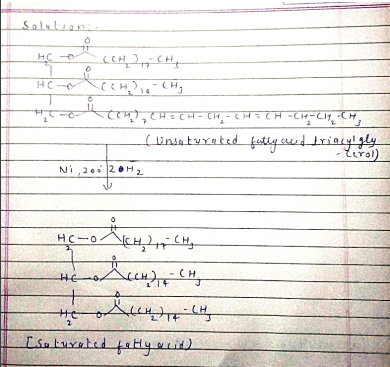 Solution:-
O
H2C-O (CH2)17-CH3
O
HC-O (CH2)14-CH3
O
H2C-O (CH2)7CH=CH-CH2-CH=CH-CH2-CH2-CH3
(Unsaturated fatty acid triacylgly
-cerol)
Ni, 200 20H2
O
H2C-O (CH2)17-CH3
O
HC-O (CH2)14-CH3
O
H2C-O (CH2)14-CH3
[Saturated fatty acid)